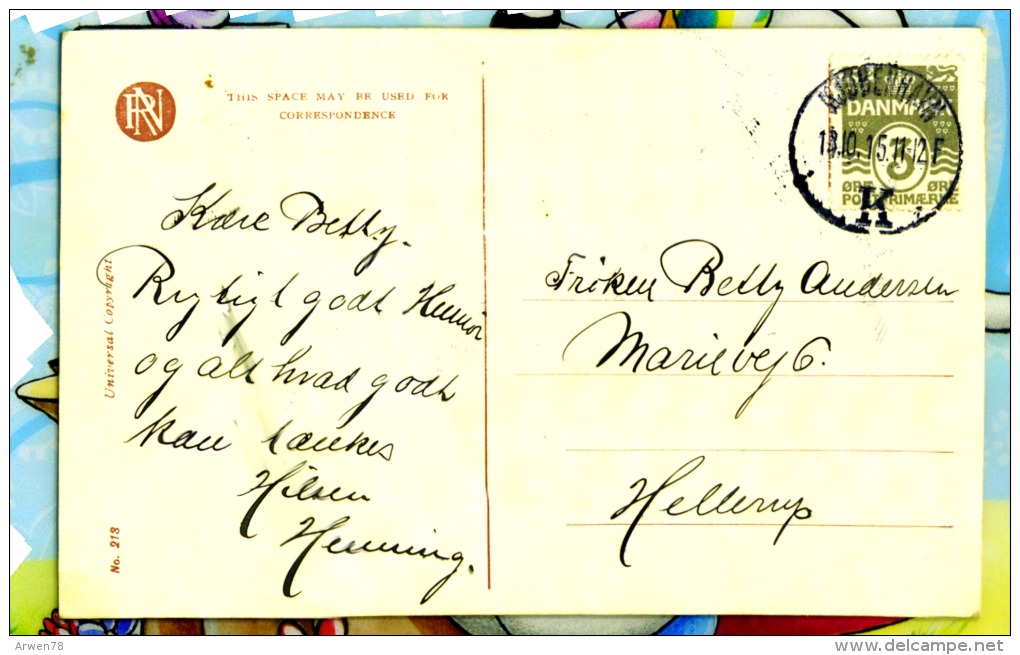 RN
THIS SPACE MAY BE USED FOR
CORRESPONDENCE
Kære Betty.
Rigtigt godt Humør
og alt hvad godt
kan tænkes
Hilsen
Henning.
Universal Copyright
No. 213
KJØBENHAVN
13.10.15.11-12 F
K
DANMARK
3
ØRE ØRE
POSTFRIMÆRKE
Frøken Betty Andersen
Marievej 6.
Hellerup
Arwen78
www.delcampe.net